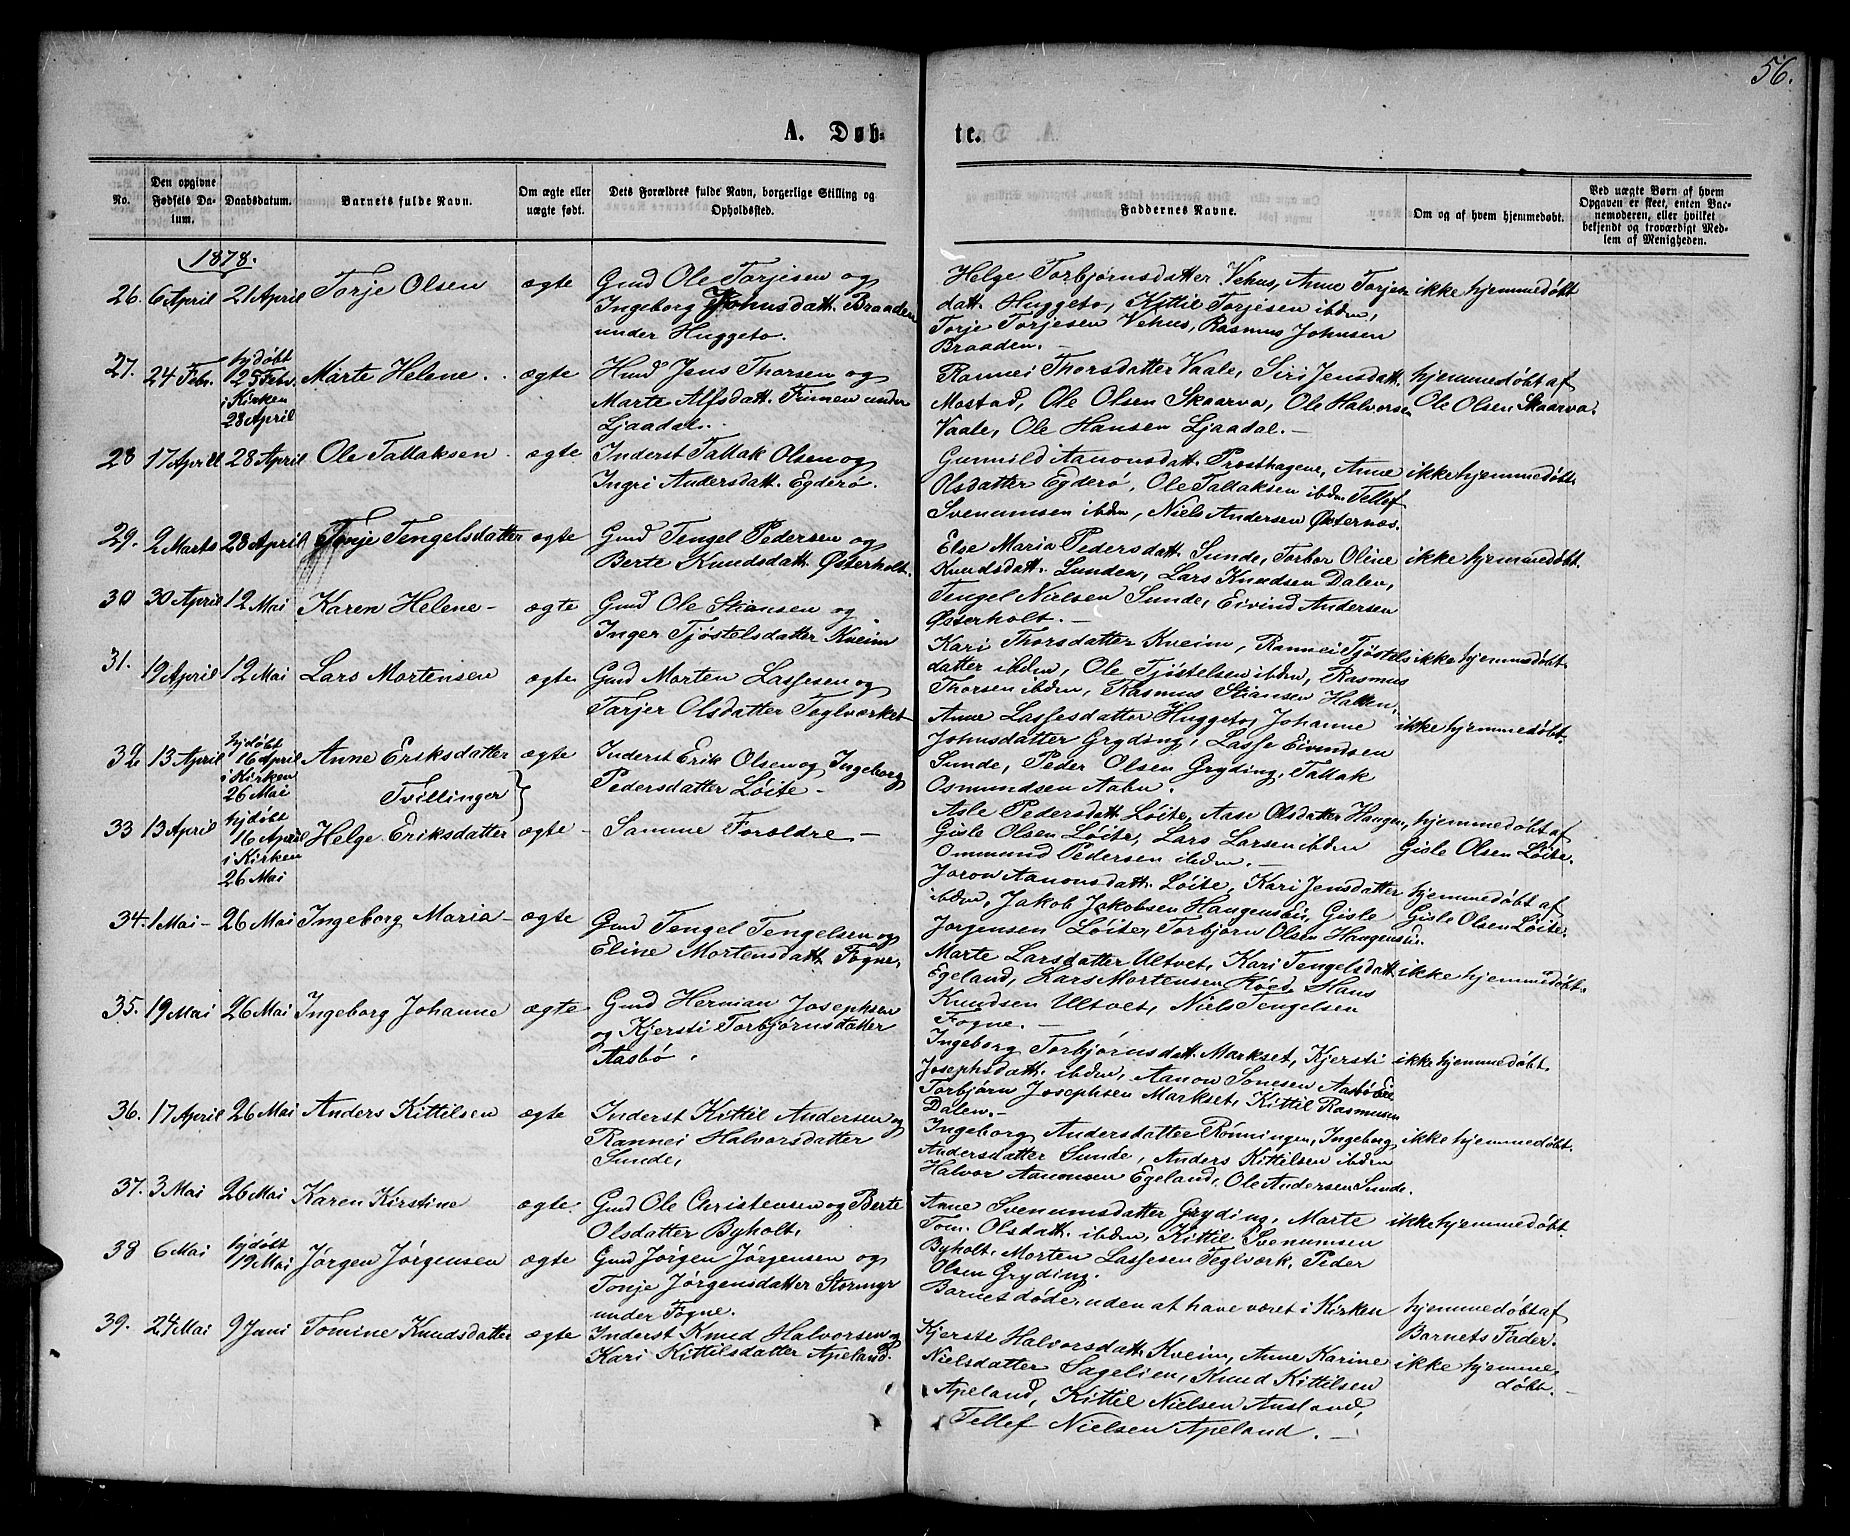 56.
A. Døb=
te.
No.
Den opgivne Fødsels Da-tum.
Daabsdatum.
Barnets fulde Navn.
Om ægte eller uægte født.
Dets Forældres fulde Navn, borgerlige Stilling og Opholdssted.
Faddernes Navne.
Om og af hvem hjemmedøbt.
Ved uægte Børn af hvem Opgaven er skeet, enten Bar-nemoderen, eller hvilket bekjendt og troværdigt Med-lem af Menigheden.
1878.
26. 6 April 21 April Torje Olsen ægte Gmd Ole Torjesen og
Ingeborg Johnsdatt. Braaden
under Huggeto.
Helge Torbjørnsdatter Vehus, Anne Torjes- ikke hjemmedøbt
datt. Huggeto, Kittil Torjesen ibdm,
Torje Torjesen Vehus, Rasmus Johnsen
Braaden.-
27. 24 Febr. hjdøbt
25 Febr.
i Kirken
28 April
Marte Helene. ægte Hmd Jens Thorsen og
Marte Alfsdatt. under
Ljaadal.
Rannei Thorsdatter Vaale, Siri Jensdatt. hjemmedøbt af
Mostad, Ole Olsen Skaarva, Ole Halvorsen Ole Olsen Skaarva.
Vaale, Ole Hansen Ljaadal.-
28 17 April 28 April Ole Tallaksen ægte Inderst Tallak Olsen og
Ingri Andersdatt. Egderø.
Gunnild Aanonsdatt. Præsthagene, Anne ikke hjemmedøbt.
Olsdatter Egderø, Ole Tallaksen ibdm Tellef
Svenumsen ibdm, Niels Andersen Østernæs.
29. 2 Marts 28 April Tonje Tengelsdatter ægte Gmd Tengel Pedersen og
Berte Knudsdatt. Østerholt.
Else Maria Pedersdatt. Sunde, Torbor Oline ikke hjemmedøbt
Knudsdatt. Lunden, Lars Knudsen Dalen,
Tengel Nielsen Sunde, Eivind Andersen
Østerholt.-
30 30 April 12 Mai Karen Helene- ægte Gmd Ole Stiansen og
Inger Tjøstelsdatter Kveim
Kari Thorsdatter Kveim, Rannei Tjøstels- ikke hjemmedøbt.
datter ibdm, Ole Tjøstelsen ibdm, Rasmus
Thorsen ibdm, Rasmus Stiansen Hatten.
31. 19 April 12 Mai Lars Mortensen ægte Gmd Morten Lassesen og
Tarjer Olsdatter Teglværket
Anne Lassesdatter Huggeto, Johanne ikke hjemmedøbt.
Johnsdatter Gryding, Lasse Eivindsen
Sunde, Peder Olsen Gryding, Tallak
Osmundsen Aabu.
32 13 April hjdøbt
16 April
i Kirken
26 Mai
Anne Eriksdatter ægte Inderst Erik Olsen og Ingeborg
Tvillinger Pedersdatter Løite-
Asle Pedersdatt. Løite, Aase Olsdatter Haugen, hjemmedøbt af
Gisle Olsen Løite, Lars Larsen ibdm Gisle Olsen Løite.
Ommund Pedersen ibdm.-
33 13 April hjdøbt
16 April
i Kirken
26 Mai
Helge Eriksdatter ægte- Samme Forældre-
Joron Aanonsdatt. Løite, Kari Jensdatter hjemmedøbt af
ibdm, Jakob Jakobsen Haugensei, Gisle Gisle Olsen Løite.
Jørgensen Løite, Torbjørn Olsen
34. 1 Mai- 26 Mai Ingeborg Maria- ægte Gmd Tengel Tengelsen og
Eline Mortensdatt. Fogne,
Marte Larsdatter Ultvet, Kari Tengelsdatt. ikke hjemmedøbt.
Egeland, Lars Mortensen Hoed, Hans
Knudsen Ultvet, Niels Tengelsen
Fogne.-
35. 19 Mai 26 Mai Ingeborg Johanne ægte Gmd Herman Josephsen
og Kjersti Torbjørnsdatter
Aasbø.
Ingeborg Torbjørnsdatt. Markset, Kjersti ikke hjemmedøbt.
Josephsdatt. ibdm, Aanon Sonesen Aasbø,
Torbjørn Josephsen Markset, Kittil Rasmusen
Dalen.-
36. 17 April 26 Mai Anders Kittilsen ægte Inderst Kittil Andersen og
Rannei Halvorsdatter
Sunde,
Ingeborg Andersdatter Rønningen, Ingeborg ikke hjemmedøbt.
Andersdatter Sunde, Anders Kittilsen ibdm
Halvor Aanonsen Egeland, Ole Andersen Sunde.
37. 3 Mai 26 Mai Karen Kirstine ægte. Gmd Ole Christensen og Berte
Olsdatter Byholt,
Anne Svenumsdatter Gryding, Marte ikke hjemmedøbt.
Tom. Olsdatt. ibdm, Kittil Svenumsen
Byholt, Morten Lassesen Teglværk, Peder
Olsen Gryding.
38 6 Mai hjdøbt
19 Mai
Jørgen Jørgensen ægte Gmd Jørgen Jørgensen og
Tonje Jørgensdatter Stormyr
under Fogne.
Barnet døde uden at have været i Kirken hjemmedøbt af
Barnets Fader.
39. 24 Mai 9 Juni Tomine Knudsdatter ægte Inderst Knud Halvorsen og
Kari Kittilsdatter Apeland.
Kjersti Halvorsdatt. Kveim, Anne Karine ikke hjemme-
Nielsdatter Sagelien, Knud Kittilsen døbt.-
Apeland, Kittil Nielsen Ausland,
Tellef Nielsen Apeland.-